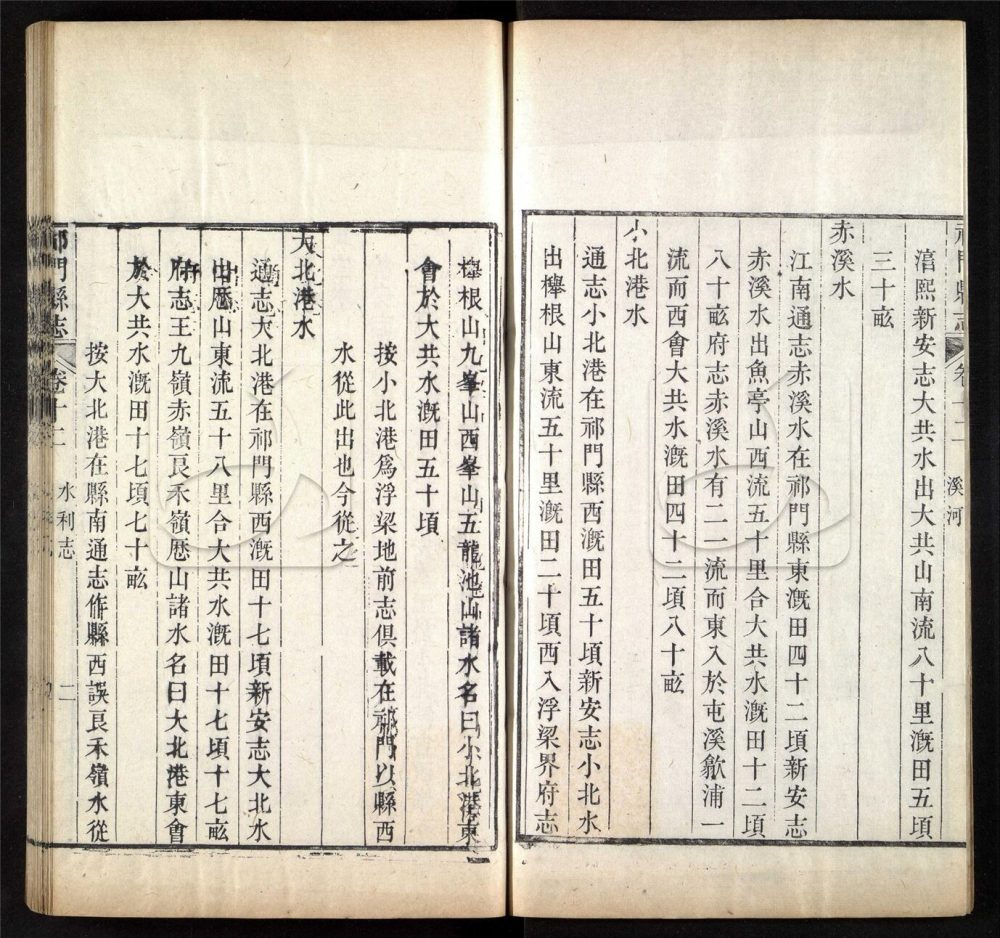 祁門縣志 卷十二 溪河
淳熙新安志大共水出大共山南流八十里溉田五頃
三十畝
赤溪水
江南通志赤溪水在祁門縣東溉田四十二頃新安志
赤溪水出魚亭山西流五十里合大共水溉田十二頃
八十畝府志赤溪水有二一流而東入於屯溪歙浦一
流而西會大共水溉田四十二頃八十畝
小北港水
通志小北港在祁門縣西溉田五十頃新安志小北水
出櫸根山東流五十里溉田二十頃西入浮梁界府志
櫸根山九峯山西峯山五龍池山諸水名曰小北港東
會於大共水溉田五十頃
按小北港爲浮梁地前志俱載在祁門以縣西
水從此出也今從之
大北港水
通志大北港在祁門縣西溉田十七頃新安志大北水
出歷山東流五十八里合大共水溉田十七頃十七畝
府志王九嶺赤嶺良禾嶺歷山諸水名曰大北港東會
於大共水溉田十七頃七十畝
按大北港在縣南通志作縣西誤良禾嶺水從
祁門縣志 卷十二 水利志 二